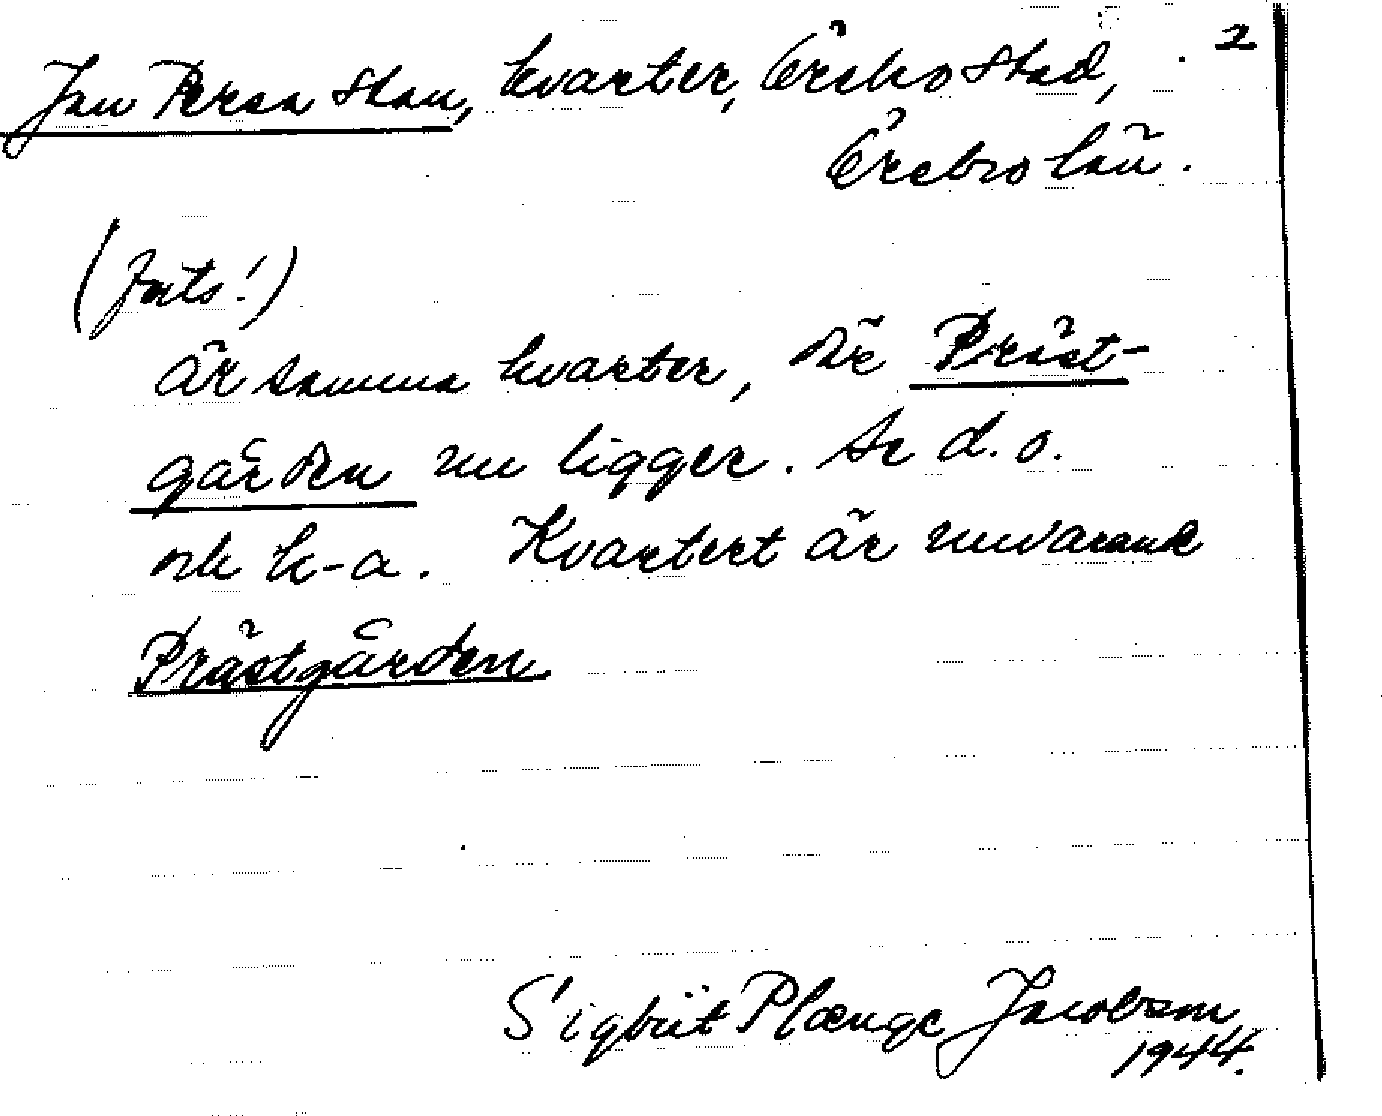 2
Jan Persa Stan, kvarter, Örebro Stad,
Örebro län.
(forts!)
är samma kvarter, där Präst-
gården nu ligger. Se d. o.
och k-a. Kvarteret är nuvarande
Prästgården.
Sigbrit Plænge Jacobson
1944.